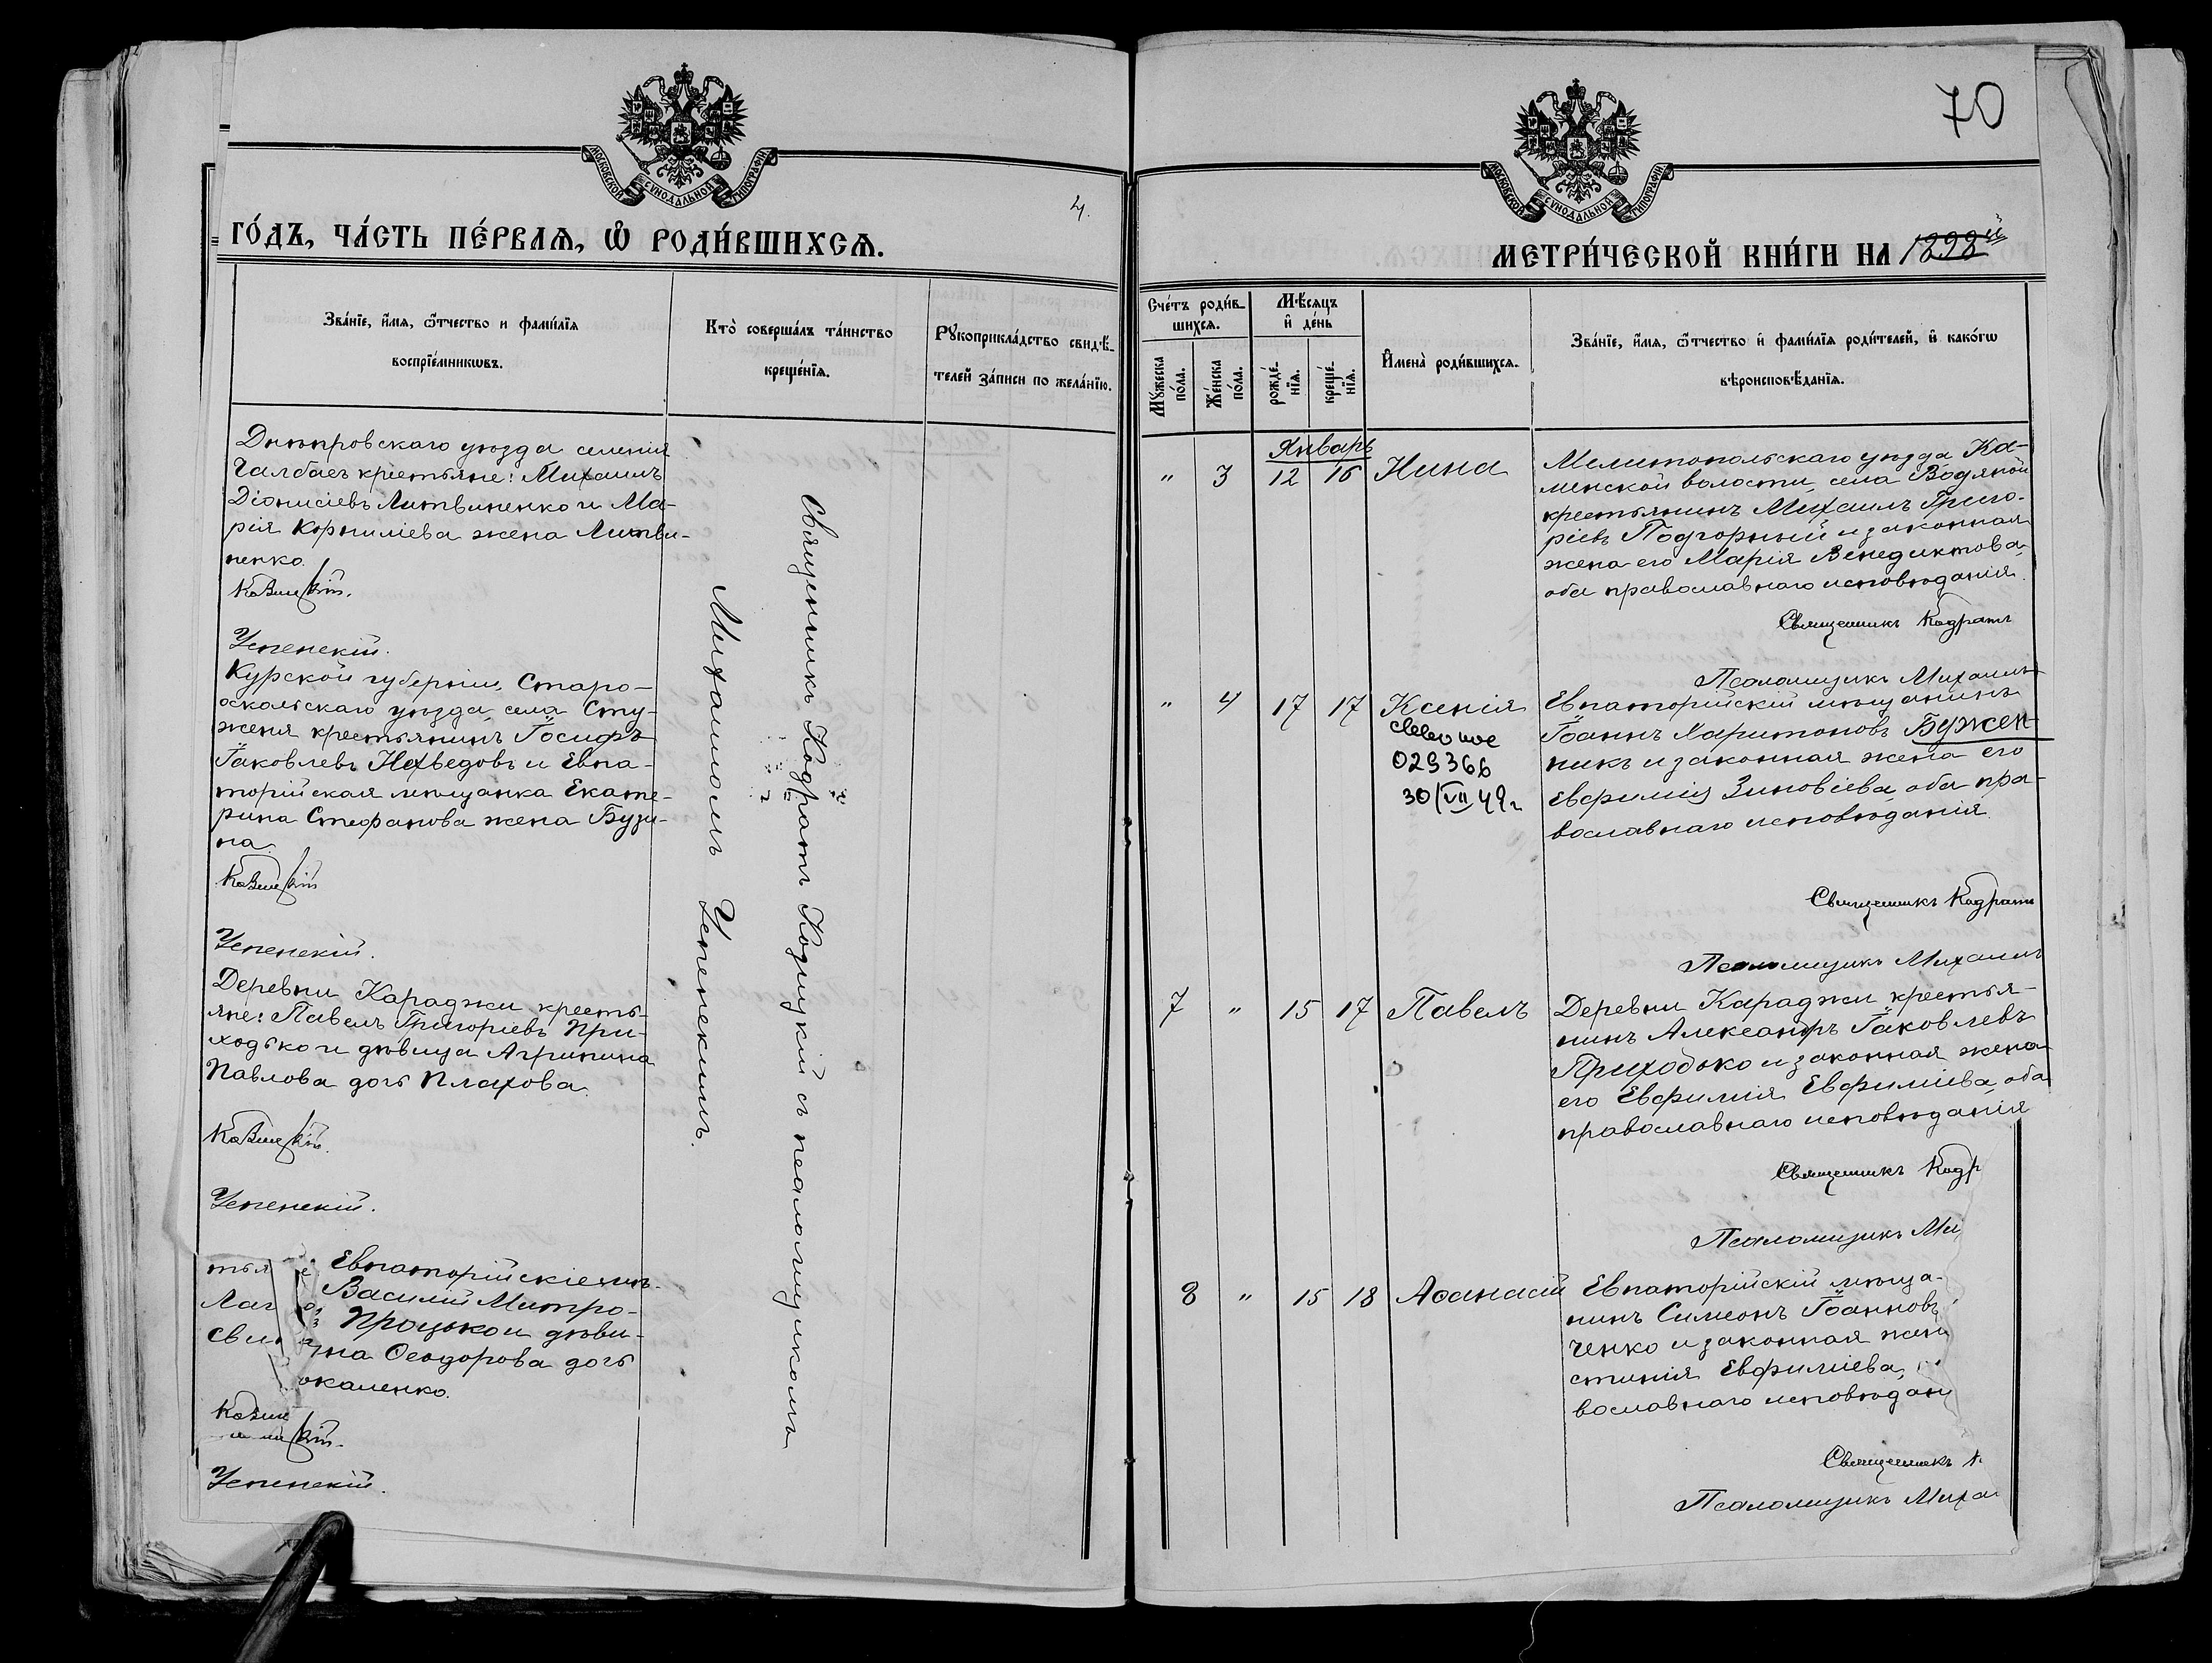 4.
МОСКОВСКОЙ СѴНОДАЛЬНОЙ ТИПОГРАФІИ
ГО́ДЪ, ЧА́СТЬ ПЕ́РВАѦ, Ѡ҆ РОДИ́ВШИХСѦ.
Зва́нїе, и҆́мѧ, ѻ҆́тчество и фами́лїѧ
воспрїе́мникωвъ.
Кто̀ соверша́лъ та́инство
креще́нїѧ.
Рꙋкоприкла́дство свидѣ́-
телей за́писи по жела́нїю.
Днѣпровскаго уѣзда селенія
Чалбасъ крестьяне: Михаилъ
Діонисіевъ Литвиненко и Ма-
рія Корниліева жена Литви-
ненко.
Успенскій.
Курской губерніи, Старо-
оскольскаго уѣзда, села Сту-
женя крестьянинъ Іосифъ
Іаковлевъ Нехведовъ и Евпа-
торійская мѣщанка Екате-
рина Стефанова жена Бузи-
на.
Успенскій.
Деревни Караджи кресть-
яне: Павелъ Григоріевъ При-
ходько и дѣвица Агрипина
Павлова дочь Плахова.
Успенскій.
Евпаторійскіе
Василій Митро-
Процько и дѣви-
на Ѳеодорова дочь
окаленко.
Успенскій.
Священникъ Кодратъ с псаломщикомъ
Михаиломъ Успенскимъ.
70
МОСКОВСКОЙ СѴНОДАЛЬНОЙ ТИПОГРАФІИ
МЕТРИ́ЧЕСКОЙ КНИ́ГИ НА 1898й
Сче́тъ роди́в-
шихсѧ.
Мꙋ́жеска по́ла.
Же́нска по́ла.
Мѣ́сѧцъ
и҆ де́нь
рожде́нїѧ.
креще́нїѧ.
И҆мена̀ роди́вшихсѧ.
Зва́нїе, и҆́мѧ, ѻ҆́тчество и҆ фами́лїѧ роди́телей, и҆ како́гω
вѣроисповѣ́данїѧ.
Январь
" 3 12 16 Нина
Мелитопольскаго уѣзда Ка-
менской волости, села Водяной
крестьянинъ Михаилъ Григо-
ріевъ Подгорный и законная
жена его Марія Венедиктова,
оба православнаго исповѣданія.
Священникъ Кодратъ
Псаломщикъ Михаилъ
" 4 17 17 Ксенія
029366
30/VII 49г
Евпаторійскій мѣщанинъ
Іоаннъ Харитоновъ Бужен-
никъ и законная жена его
Евфимія Зиновіева, оба пра-
вославнаго исповѣданія.
Священникъ Кодратъ
Псаломщикъ Михаилъ
7 " 15 17 Павелъ
Деревни Караджи крестья-
нинъ Александръ Іаковлевъ
Приходько и законная жена
его Евфимія Евфиміева, оба
православнаго исповѣданія
Священникъ Кодр
Псаломщикъ Ми
8 " 15 18 Аѳанасій
Евпаторійскій мѣща-
нинъ Симеонъ Іоанновъ
ченко и законная жена
стинія Евфиміева,
вославнаго исповѣдан
Священникъ
Псаломщикъ Миха